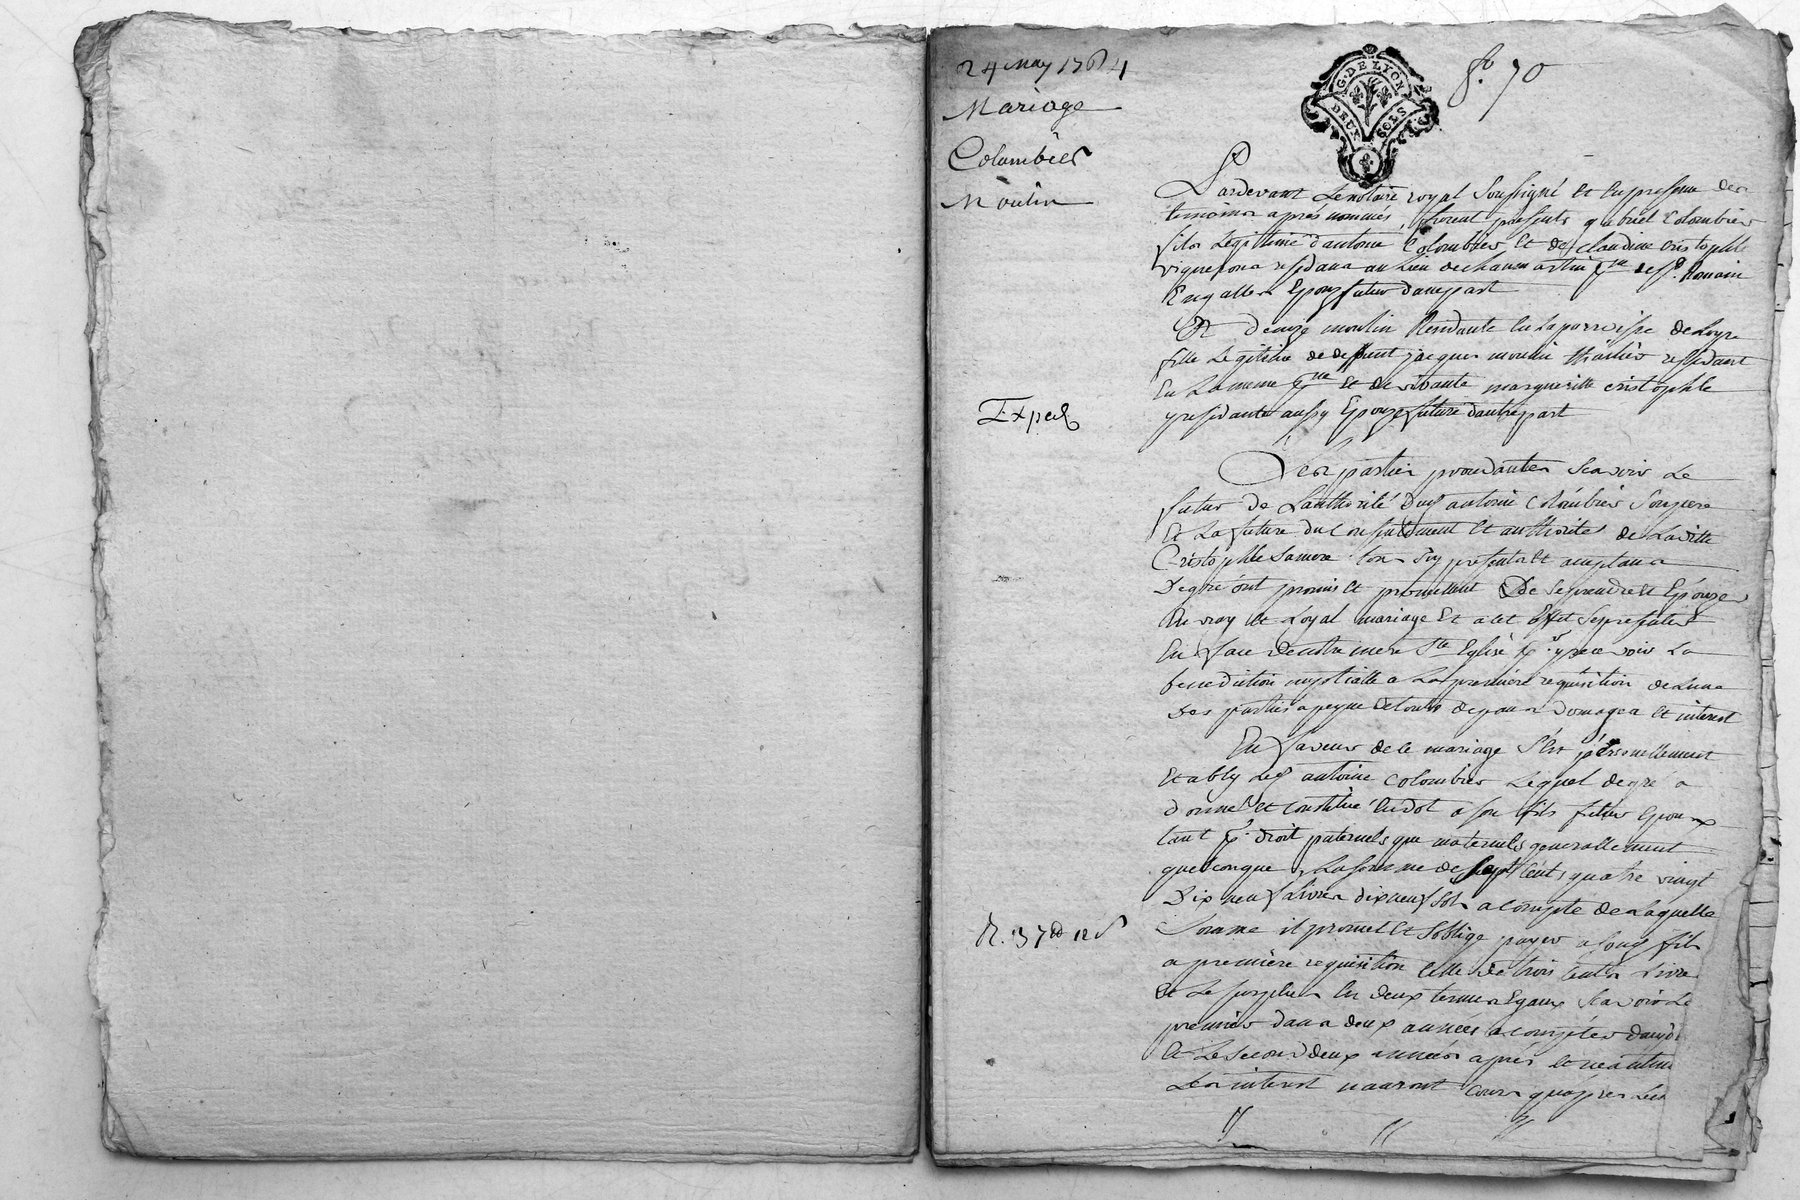 24 may 1764
Mariage
Colombier
Moulin
G. DE LYON
DEUX SOLS
fo. 70
Pardevant Le notaire royal Soussigné et En presence des
temoins après nommés, furent presents gabriel Colombier
fils Legitime d'antoine Colombier et de claudine cristophle
vignerons residans au Lieu de chasmartin psse de st. Romain
En galles Epoux futur d'une part
Et moulin Residante En La parroisse de Loyre
fille Legitime de deffunt jacques moulin residant
En La meme psse et de vivante margueritte cristophle
y residante aussy Epouze future d'autre part
Exped
Les parties procedantes Scavoir Le
futur de L'authorité dud antoine Colombier Son pere
Et La future du Consentement et authorité de Laditte
Cristophle Sa mere tous Icy presents et acceptans
De gré ont promis et promettent De se prendre et Epouzer
En vray et Loyal mariage et a cet Effet Se presenter
En face de notre mere Ste Eglise pr. y recevoir La
benediction nuptialle a La premiere requisition de L'une
des parties a peyne de tous depans domages et interest
En faveur de ce mariage S'est personnellement
Etably Led antoine Colombier Lequel de gré a
donné et constitué En dot a son fils futur Epoux
tant pr. droit paternels que maternels generallement
quelconque, La somme de Sept Cent quatre vingt
Dix neuf Livres dix neuf Sols a compte de Laquelle
Somme il promet et S'oblige payer a soud fils
a premiere requisition Celle de trois Cents Livres
et Le surplus En deux termes Egaux Scavoir Le
premier dans deux années a compter
et Le Second deux années après et
Les interest n'auront cours qu'après